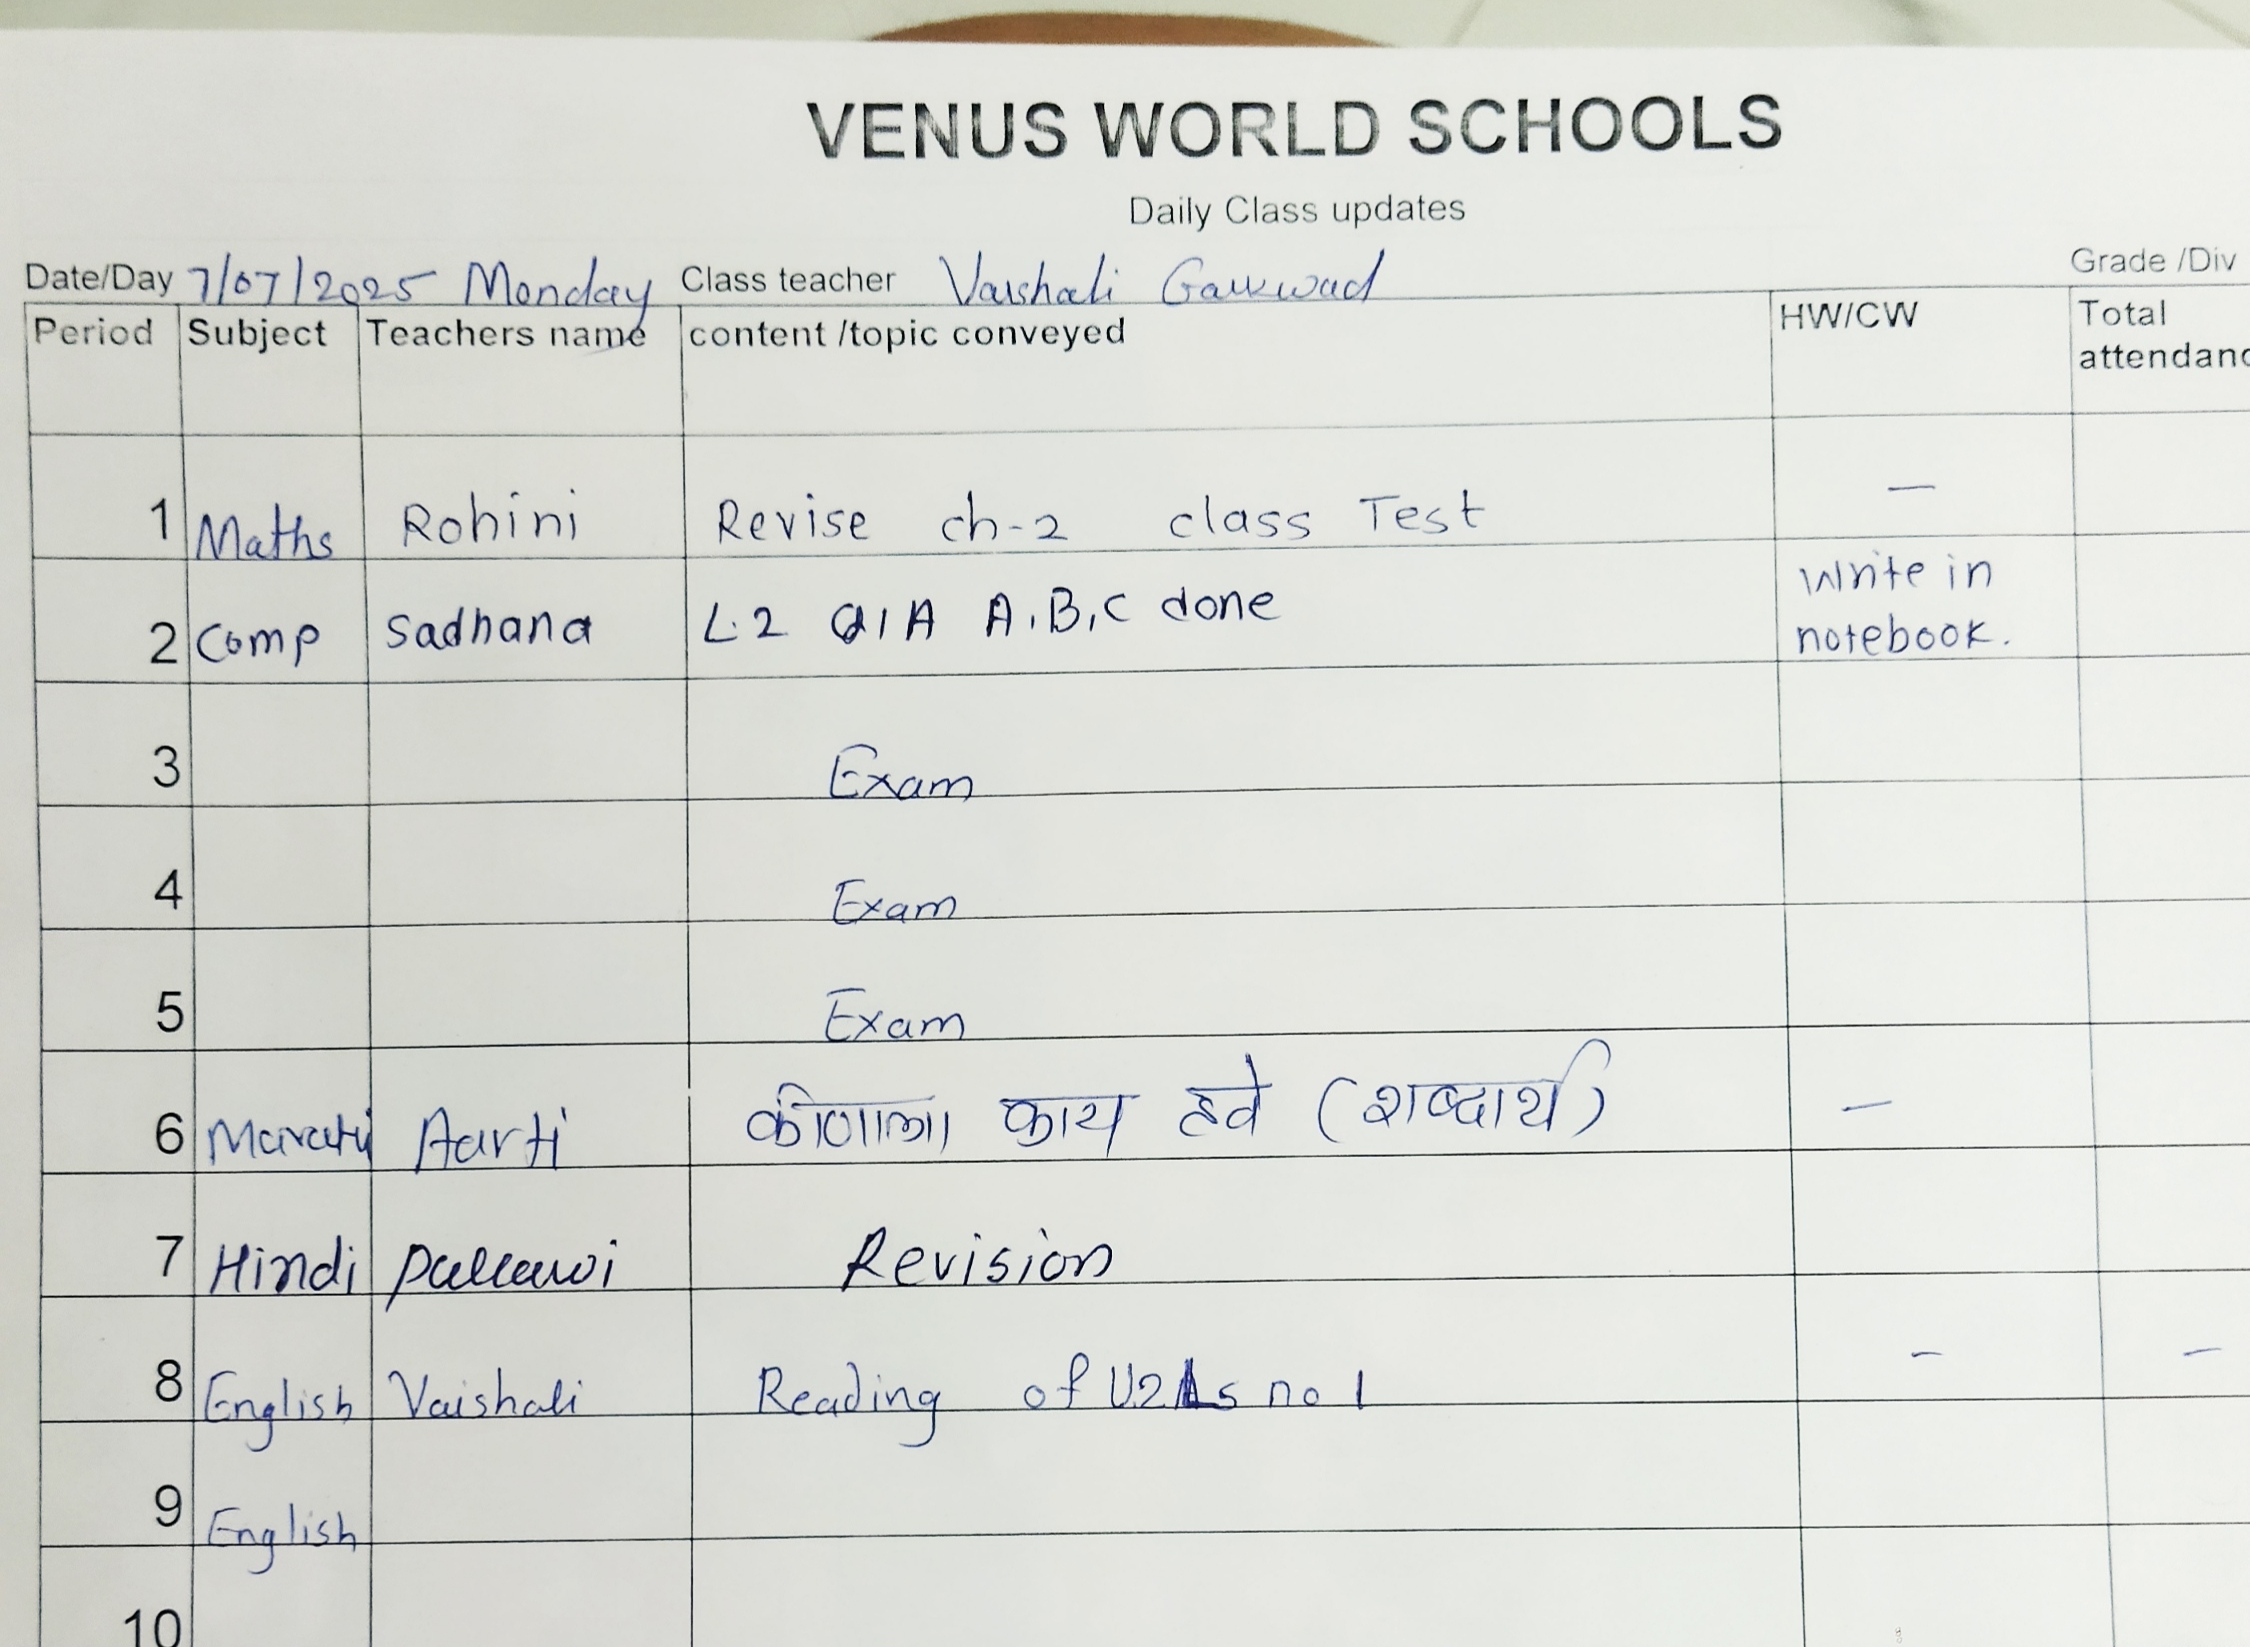 VENUS WORLD SCHOOLS
Daily Class updates
Date/Day 7/07/2025 Monday Class teacher Vaishali Gaikwad Grade /Div
Period Subject Teachers name content /topic conveyed HW/CW Total
attendanc
1 Maths Rohini Revise ch-2 class Test —
2 Comp Sadhana L.2 Q/A A,B,C done Write in
notebook.
3 Exam
4 Exam
5 Exam
6 Marathi Aarti कोणाला काय हवे (शब्दार्थ) —
7 Hindi Pallawi Revision
8 English Vaishali Reading of U.2 Ls no 1 – –
9 English
10